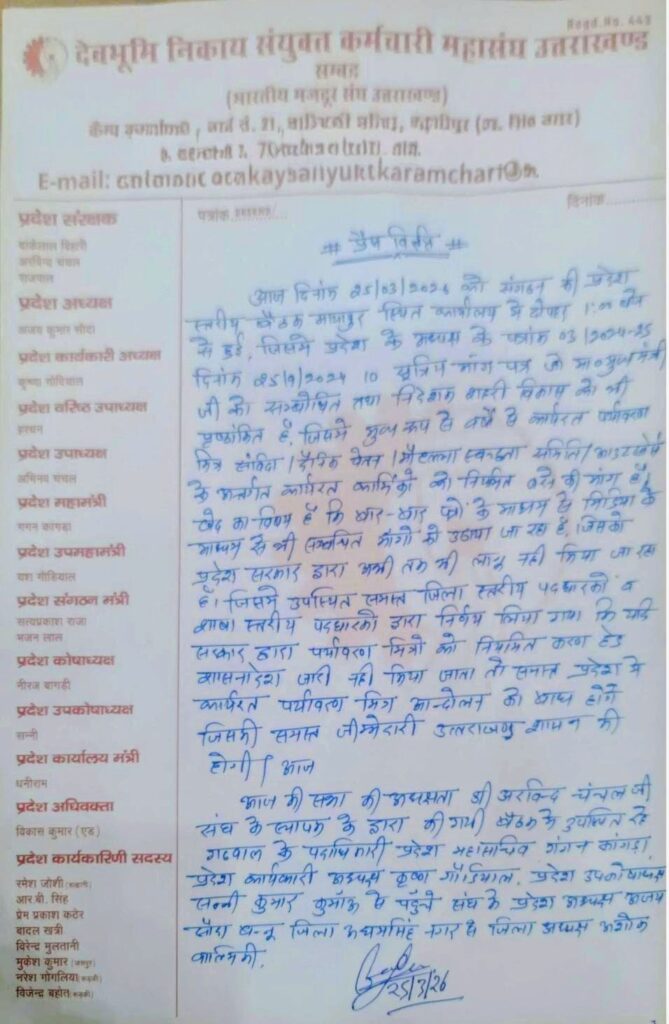 Regd. No. 449
देवभूमि निकाय संयुक्त कर्मचारी महासंघ उत्तराखण्ड
सम्बद्ध
(भारतीय मजदूर संघ उत्तराखण्ड)
E-mail:
पत्रांक
दिनांक
# प्रैस विज्ञप्ति #
प्रदेश संरक्षक
राजपाल
प्रदेश अध्यक्ष
अजय कुमार सौदा
प्रदेश कार्यकारी अध्यक्ष
कृष्णा गोडियाल
प्रदेश वरिष्ठ उपाध्यक्ष
प्रदेश उपाध्यक्ष
अभिनव चंचल
प्रदेश महामंत्री
गगन कांगडा
प्रदेश उपमहामंत्री
यश गोडियाल
प्रदेश संगठन मंत्री
सत्यप्रकाश राजा
भजन लाल
प्रदेश कोषाध्यक्ष
नीरज बागड़ी
प्रदेश उपकोषाध्यक्ष
सन्नी
प्रदेश कार्यालय मंत्री
धनीराम
प्रदेश अधिवक्ता
विकास कुमार (एड)
प्रदेश कार्यकारिणी सदस्य
रमेश जोशी
आर.बी. सिंह
प्रेम प्रकाश कटेर
बादल खत्री
विरेन्द्र मुलतानी
मुकेश कुमार
नरेश गोगलिया
विजेन्द्र बहोत
आज दिनांक 25/03/2026 को संगठन की प्रदेश
स्तरीय बैठक स्थित कार्यालय में दोपहर 1:00 बजे
से हुई, जिसमें प्रदेश के अध्यक्ष के पत्रांक 03/2024-25
दिनांक 25/9/2024 10 सूत्रिय मांग पत्र जो मा० मुख्यमंत्री
जी को सम्बोधित तथा निदेशक शहरी विकास को भी
पृष्ठांकित है, जिसमें मुख्य रूप से वर्षों से कार्यरत पर्यावरण
मित्र संविदा/दैनिक वेतन/मौहल्ला स्वच्छता समिति/आउटसोर्स
के अन्तर्गत कार्यरत कार्मिकों को नियमित करने की मांग है,
खेद का विषय है कि बार-बार पत्रों के माध्यम से मिडिया के
माध्यम से भी सम्बन्धित मांगो को उठाया जा रहा है, जिसको
प्रदेश सरकार द्वारा अभी तक भी लागू नही किया जा रहा
है। जिसमें उपस्थित समस्त जिला स्तरीय पदधारको व
शाखा स्तरीय पदधारको द्वारा निर्णय लिया गया कि यदि
सरकार द्वारा पर्यावरण मित्रों को नियमित करण हेतु
शासनादेश जारी नही किया जाता तो समस्त प्रदेश में
कार्यरत पर्यावरण मित्र आन्दोलन को बाध्य होंगे
जिसकी समस्त जीम्मेदारी उत्तराखण्ड शासन की
होगी। आज
आज की सभा की अध्यक्षता श्री अरविन्द चंचल जी
संघ के स्थापक के द्वारा की गयी बैठक में उपस्थित रहे
गढवाल के पदाधिकारी प्रदेश महासचिव गगन कांगडा,
प्रदेश कार्यकारी अध्यक्ष कृष्णा गोडियाल, प्रदेश उपकोषाध्यक्ष
सन्नी कुमार कुमाँऊ से पहुँचे संघ के प्रदेश अध्यक्ष अजय
सौदा जिला ऊधमसिंह नगर से जिला अध्यक्ष अशोक
वाल्मिकी.
25/3/26